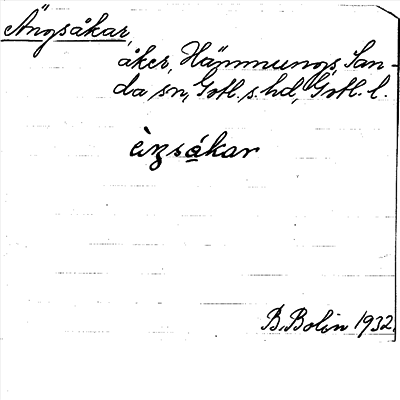 Ängsåkar,
åker, Hämmungs, San-
da sn, Gotl. s. hd, Gotl. l.
B. Bolin 1932.